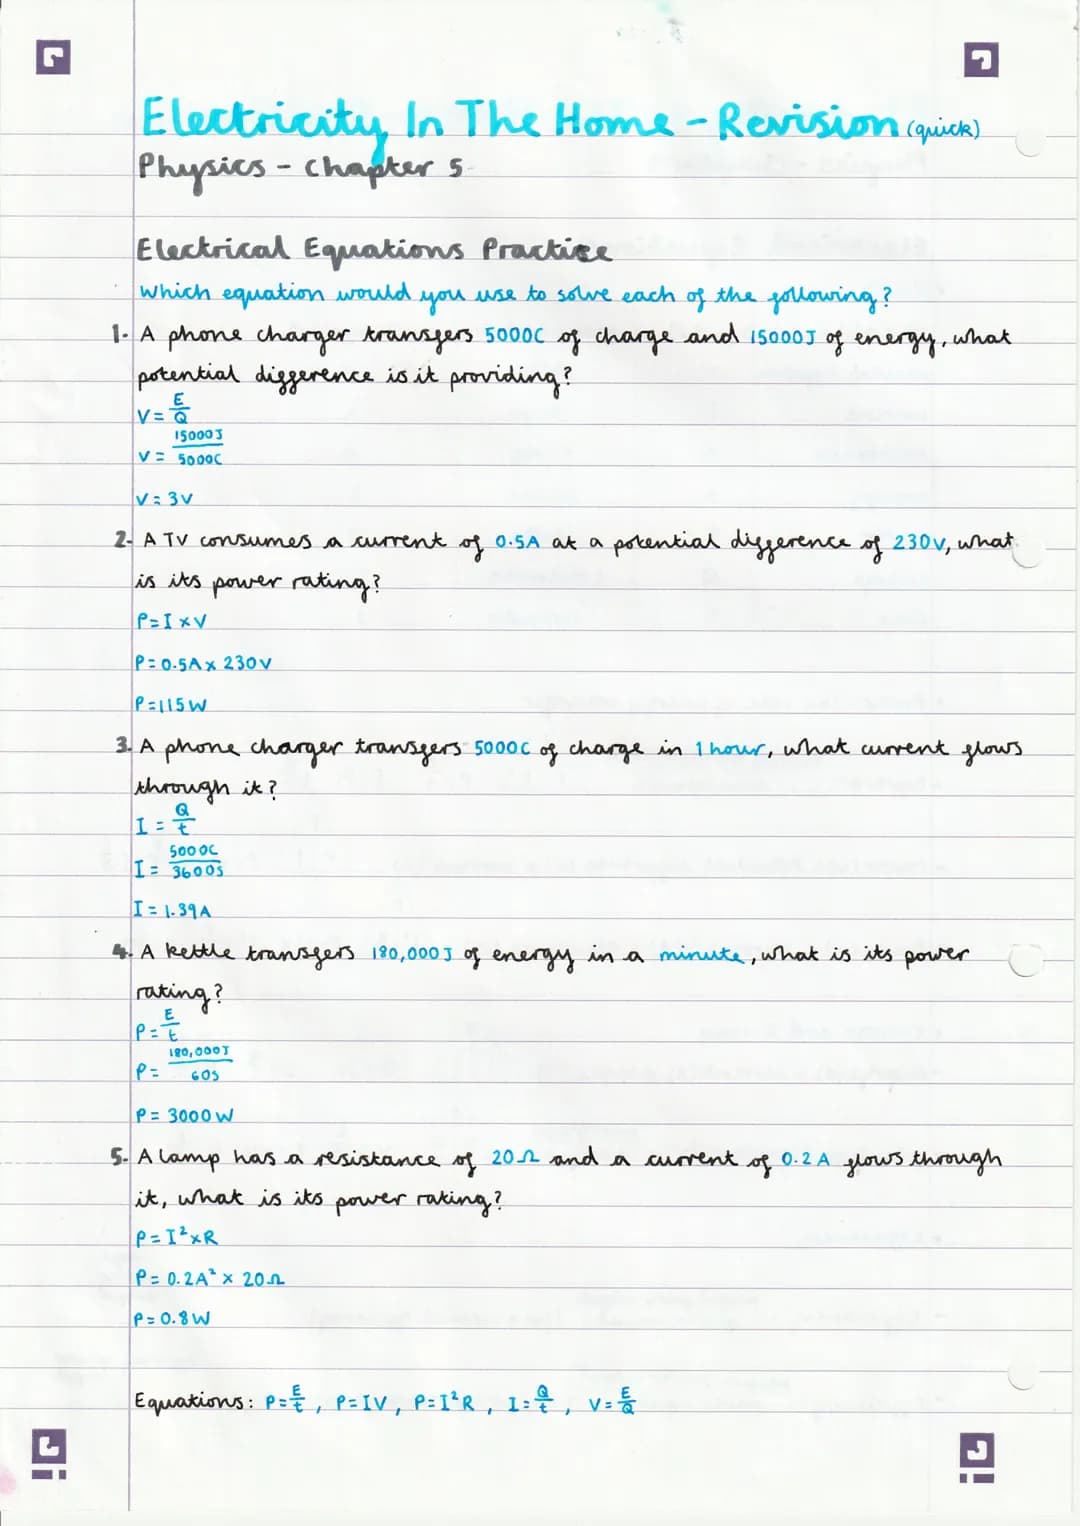 Electricity In The Home - Revision (quick)
Physics - Chapter 5
Electrical Equations Practise
Which equation would you use to solve each of the following?
1. A phone charger transfers 5000C of charge and 15000J of energy, what
potential difference is it providing?
V = E/Q
V = 15000J/5000C
V = 3V
2. A TV consumes a current of 0.5A at a potential difference of 230V, what
is its power rating?
P = I × V
P = 0.5A × 230V
P = 115W
3. A phone charger transfers 5000C of charge in 1 hour, what current flows
through it?
I = Q/t
I = 5000C/3600s
I = 1.39A
4. A kettle transfers 180,000J of energy in a minute, what is its power
rating?
P = E/t
P = 180,000J/60s
P = 3000W
5. A lamp has a resistance of 20Ω and a current of 0.2A flows through
it, what is its power rating?
P = I² × R
P = 0.2A² × 20Ω
P = 0.8W
Equations: P = E/t, P = IV, P = I²R, I = Q/t, V = E/Q